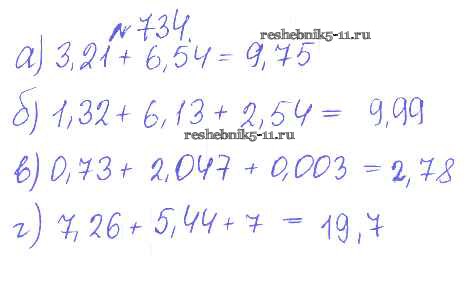 № 734.
reshebnik5-11.ru
а) 3,21 + 6,54 = 9,75
б) 1,32 + 6,13 + 2,54 = 9,99
reshebnik5-11.ru
в) 0,73 + 2,047 + 0,003 = 2,78
г) 7,26 + 5,44 + 7 = 19,7